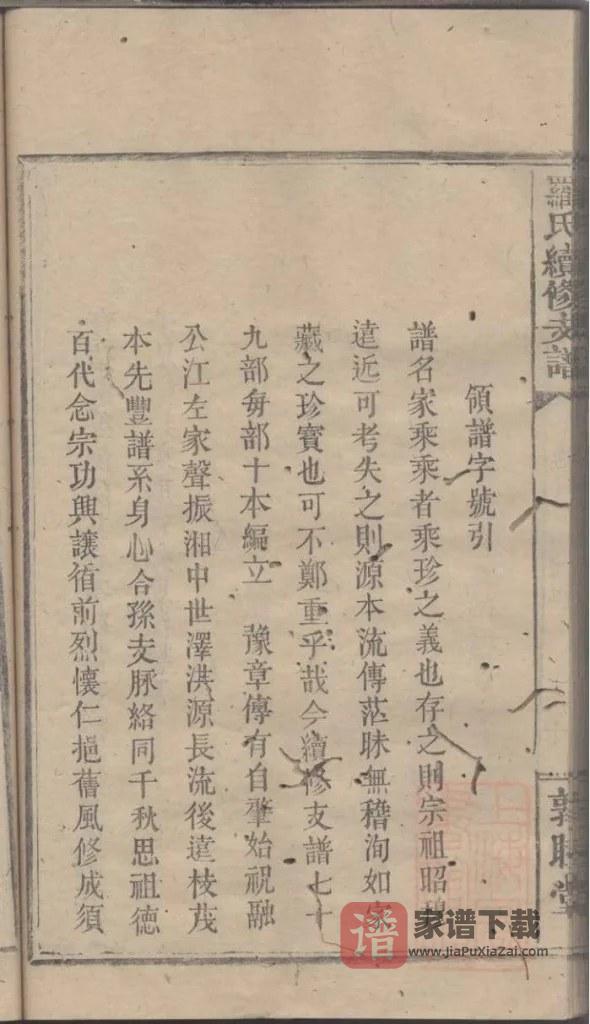 羅氏續修支譜
領譜字號引
譜名家乘乘者乘珍之義也存之則宗祖昭穆
遠近可考失之則源本流傳茫昧無稽洵如家
藏之珍寶也可不鄭重乎哉今續修支譜七十
九部每部十本編立 豫章傳有自肇始祝融
公江左家聲振湘中世澤洪源長流後遠枝茂
本先豐譜系身心合孫支脉絡同千秋思祖德
百代念宗功興讓循前烈懷仁挹舊風修成須
堂
譜
家谱下载
www.JiaPuXiaZai.com